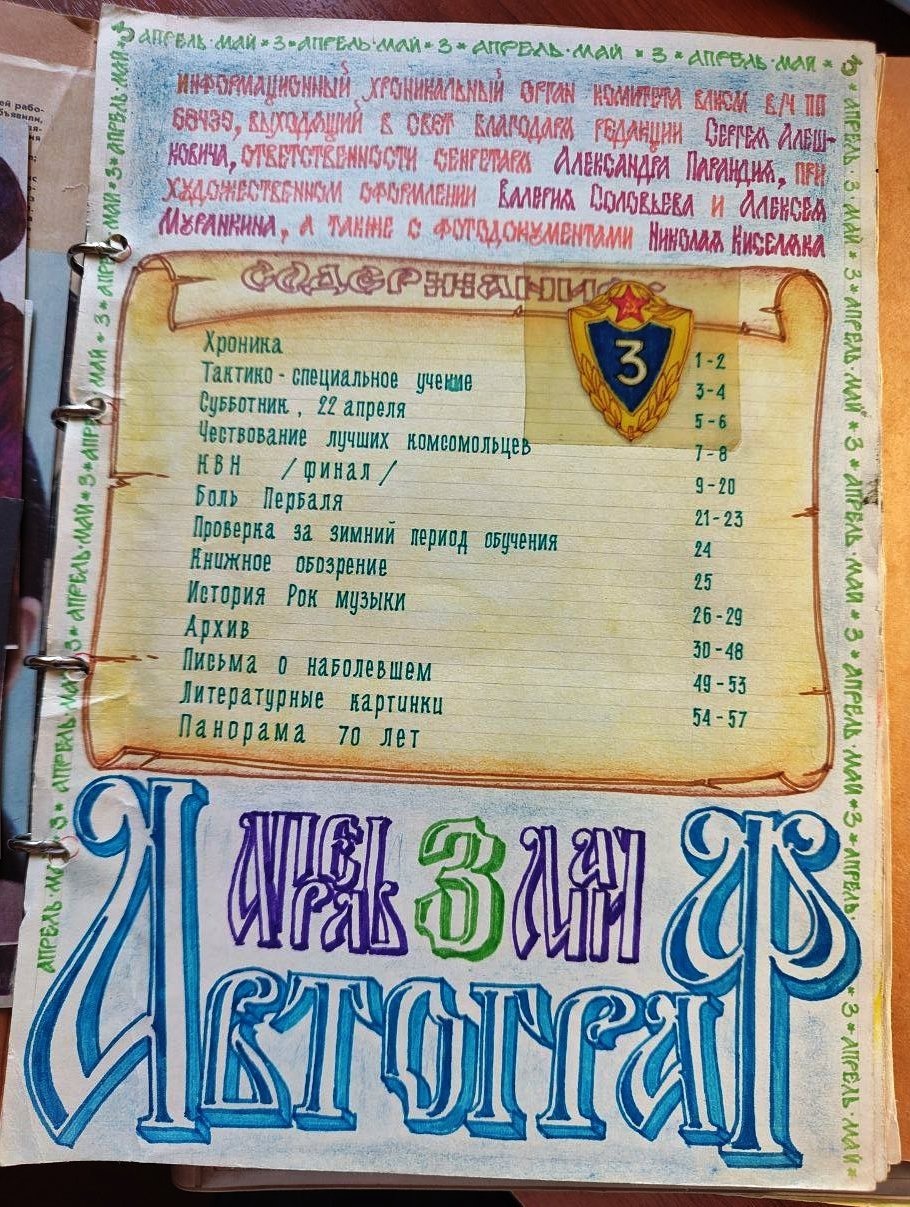 АПРЕЛЬ·МАЙ * 3 * АПРЕЛЬ·МАЙ * 3 * АПРЕЛЬ·МАЙ * 3 * АПРЕЛЬ·МАЙ * 3
ИНФОРМАЦИОННЫЙ ХРОНИКАЛЬНЫЙ ОРГАН КОМИТЕТА ВЛКСМ В/Ч ПП
68435, ВЫХОДЯЩИЙ В СВЕТ БЛАГОДАРЯ РЕДАКЦИИ СЕРГЕЯ АЛЕШ-
КОВИЧА, ОТВЕТСТВЕННОСТИ СЕКРЕТАРЯ АЛЕКСАНДРА ПАРАНДИЯ, ПРИ
ХУДОЖЕСТВЕННОМ ОФОРМЛЕНИИ ВАЛЕРИЯ СОЛОВЬЕВА И АЛЕКСЕЯ
МУРАШКИНА, А ТАКЖЕ С ФОТОДОКУМЕНТАМИ НИКОЛАЯ КИСЕЛЯКА
СОДЕРЖАНИЕ
3
Хроника 1-2
Тактико-специальное учение 3-4
Субботник, 22 апреля 5-6
Чествование лучших комсомольцев 7-8
КВН /финал/ 9-20
Боль Пербаля 21-23
Проверка за зимний период обучения 24
Книжное обозрение 25
История Рок музыки 26-29
Архив 30-48
Письма о наболевшем 49-53
Литературные картинки 54-57
Панорама 70 лет
АПРЕЛЬ 3 МАЙ
АВТОГРАФ